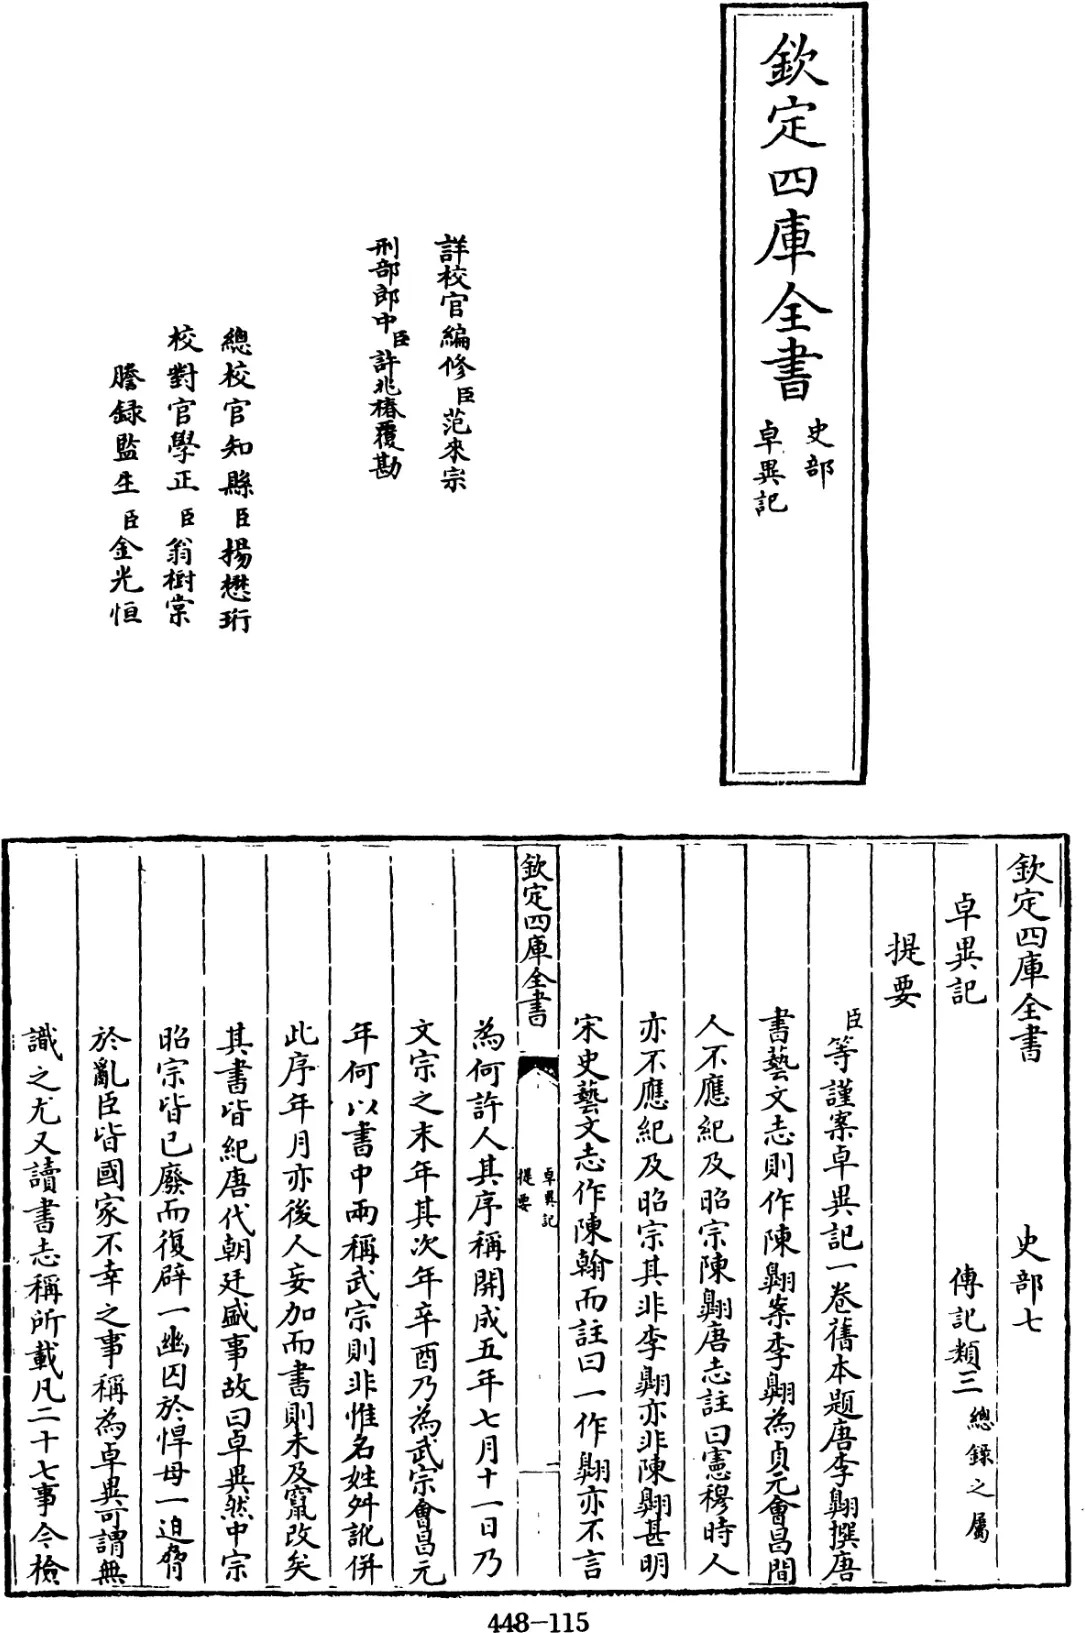 欽定四庫全書
史部
卓異記
詳校官編修臣范來宗
刑部郎中臣許兆椿覆勘
總校官知縣臣楊懋珩
校對官學正臣翁樹棠
謄錄監生臣金光恒
欽定四庫全書 史部七
卓異記 傳記類三總錄之屬
提要
臣等謹案卓異記一卷舊本題唐李翺撰唐
書藝文志則作陳翺案李翺為貞元會昌間
人不應紀及昭宗陳翺唐志註曰憲穆時人
亦不應紀及昭宗其非李翺亦非陳翺甚明
宋史藝文志作陳翰而註曰一作翺亦不言
欽定四庫全書
卓異記
提要
一
為何許人其序稱開成五年七月十一日乃
文宗之末年其次年辛酉乃為武宗會昌元
年何以書中兩稱武宗則非惟名姓舛訛併
此序年月亦後人妄加而書則未及竄改矣
其書皆紀唐代朝廷盛事故曰卓異然中宗
昭宗皆已廢而復辟一幽囚於悍母一迫脅
於亂臣皆國家不幸之事稱為卓異可謂無
識之尤又讀書志稱所載凡二十七事今檢
448-115